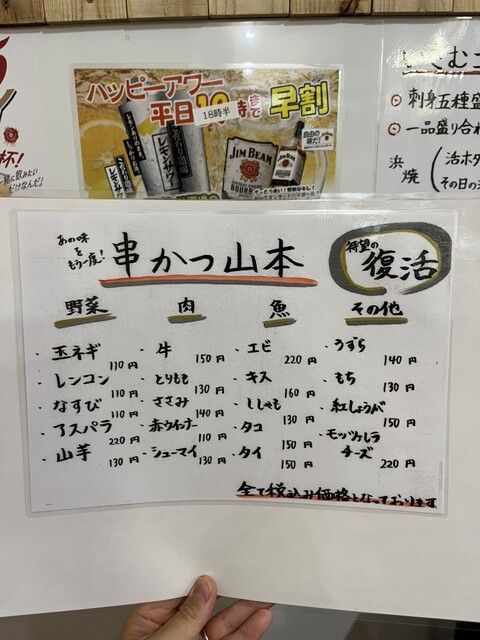 ハッピーアワー
平日18時半時まで早割
レモンサワー
JIM BEAM
自由の味だ!
刺身五種盛
一品盛り合わ
浜焼
活ホタ
その日の
杯!
一緒に飲みたい
だけなんだ!
あの味を
もう一度!
串かつ山本
待望の
復活
野菜 肉 魚 その他
・玉ネギ 110円
・レンコン 110円
・なすび 110円
・アスパラ 220円
・山芋 130円
・牛 150円
・とりもも 130円
・ささみ 140円
・赤ウインナー 110円
・シューマイ 130円
・エビ 220円
・キス 160円
・ししゃも 130円
・タコ 150円
・タイ 150円
・うずら 140円
・もち 130円
・紅しょうが 150円
・モッツァレラ
チーズ 220円
全て税込み価格となっております